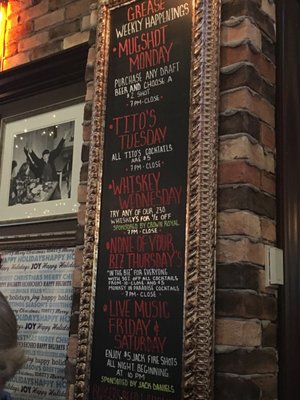 GREASE
WEEKLY HAPPENINGS
• MUGSHOT
MONDAY
PURCHASE ANY DRAFT
BEER AND CHOOSE A
$2 SHOT
- 7PM-CLOSE -
• TITO'S
TUESDAY
ALL TITO'S COCKTAILS
ARE $5
- 7PM-CLOSE -
• WHISKEY
WEDNESDAY
TRY ANY OF OUR 250
WHISKEY'S FOR ½ OFF
SPONSORED BY CROWN ROYAL
7PM-CLOSE -
• NONE OF YOUR
BIZ THURSDAY'S
"IN THE BIZ" FOR EVERYONE
WITH 50% OFF ALL COCKTAILS
FROM 10-CLOSE AND $5
MONKEY IN PARADISE COCKTAILS
- 7PM-CLOSE -
• LIVE MUSIC
FRIDAY &
SATURDAY
ENJOY $5 JACK FIRE SHOTS
ALL NIGHT
BEGINNING
AT 10 PM
SPONSORED BY JACK DANIELS
HAPPY HOLIDAYS
JOY
Merry Christmas